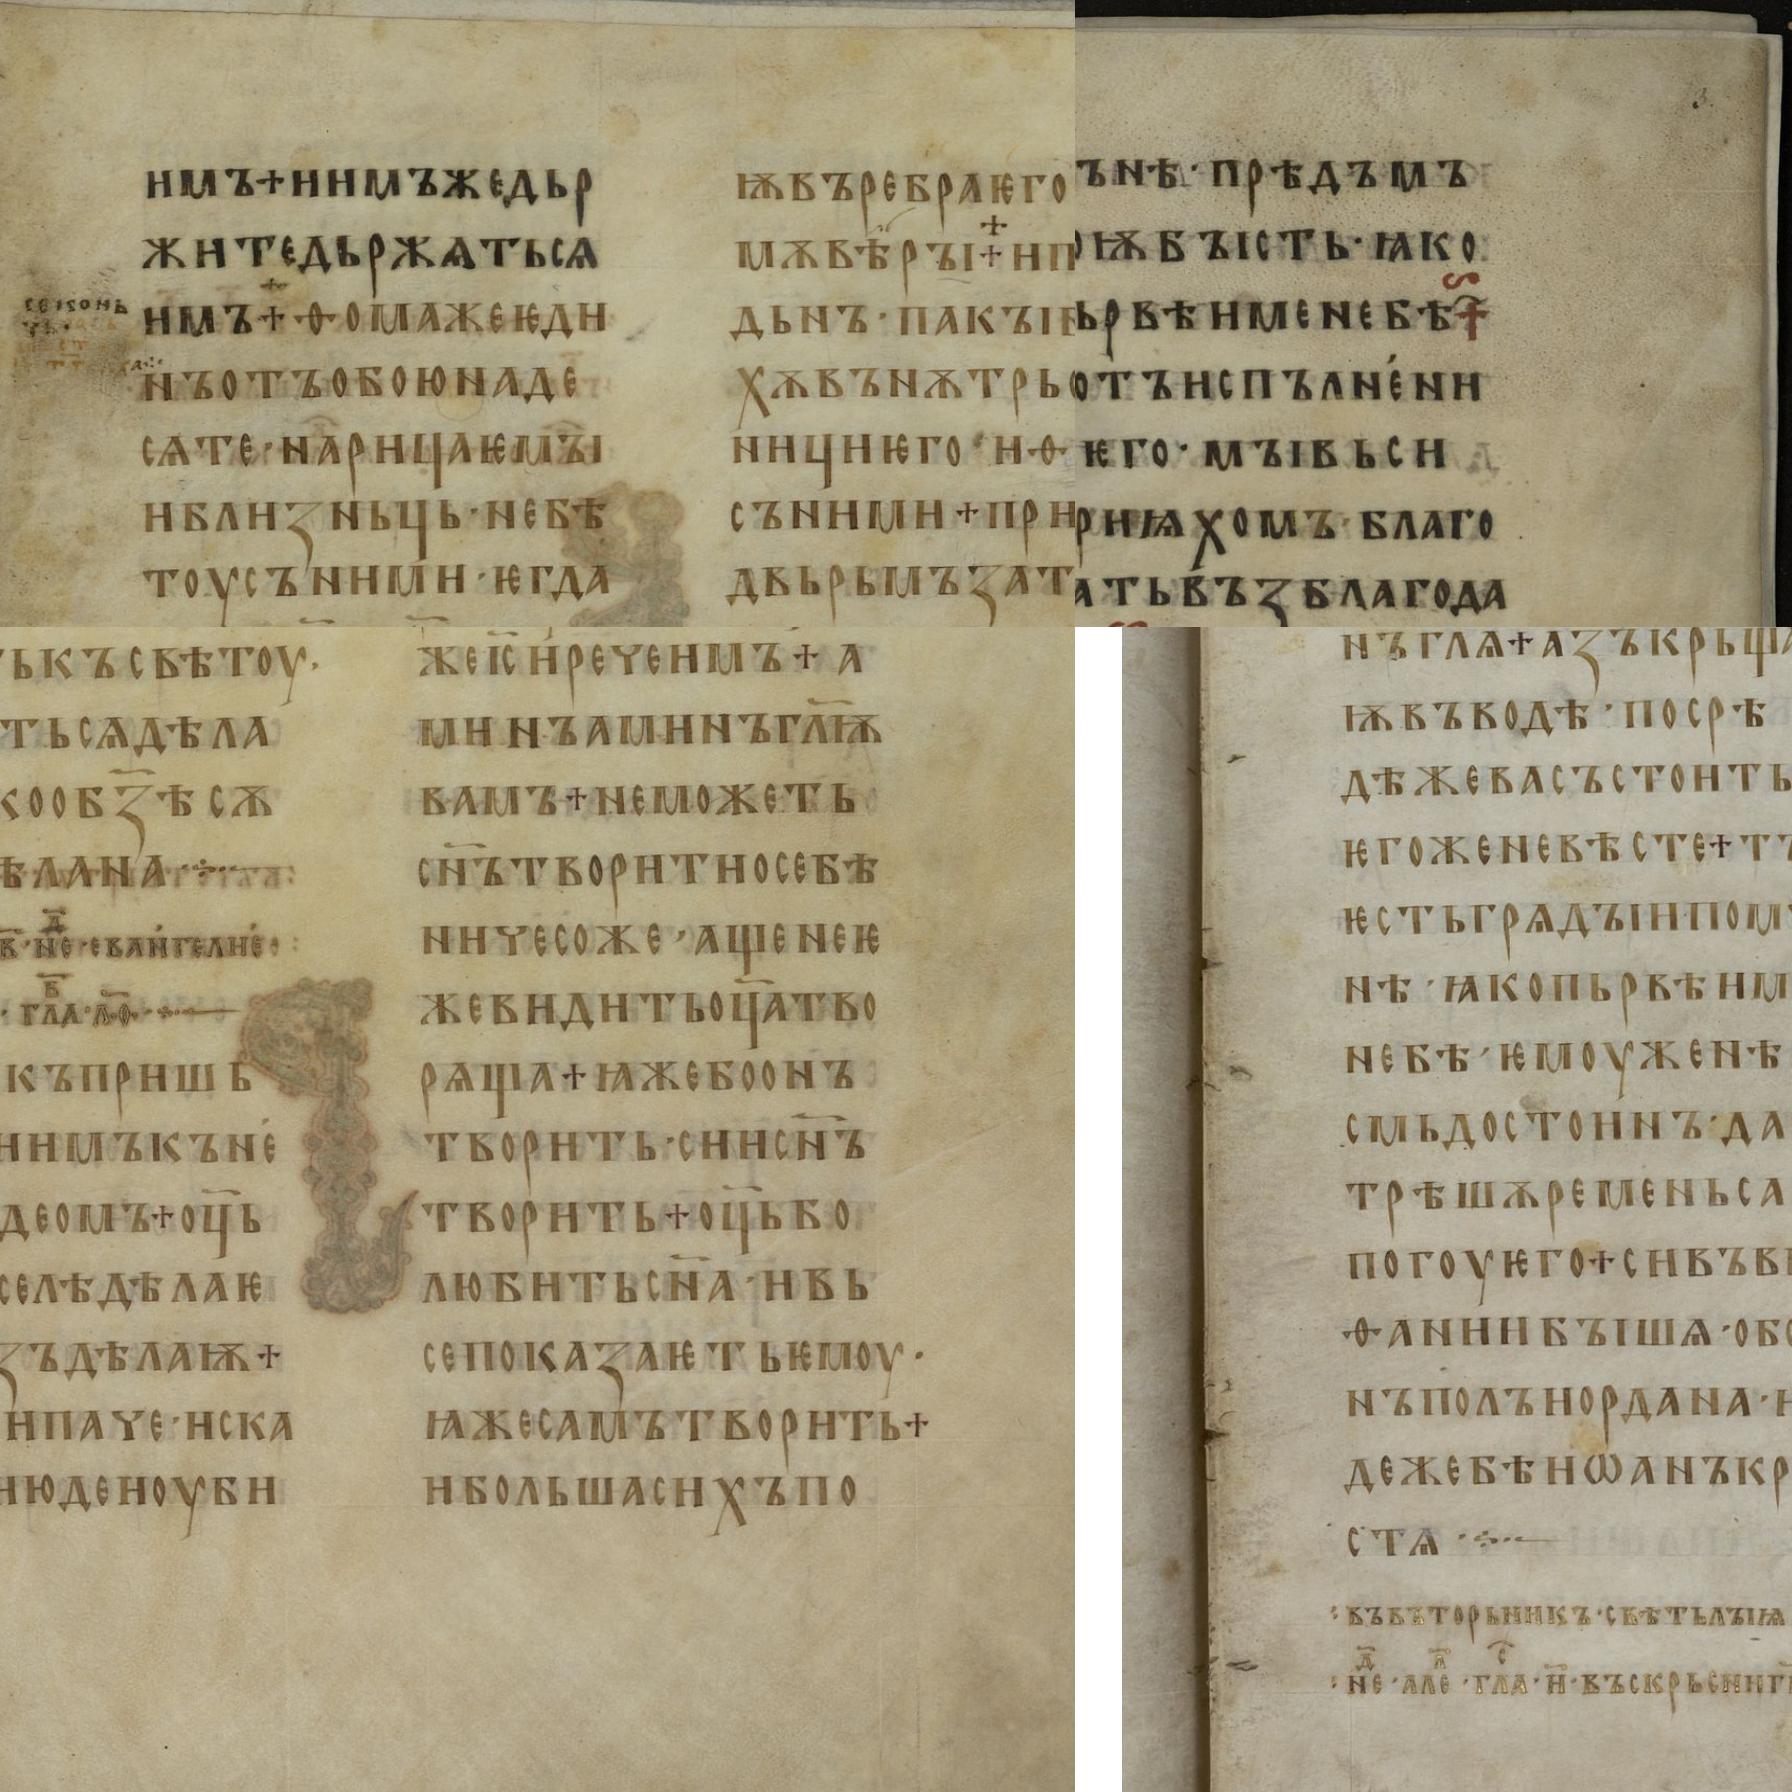 имъ+иимъжедьр
житедьржѧтьсѧ
имъ+ѳомажеѥди
нъотъобоюнаде
сѧте·нарицаѥмъı
иблизньць·небѣ
тоусъними·ѥгда
ѭвъребраѥго
мѫвѣръı+ип
дьнъ·пакъı
хѫвънѫтрь
нициѥго·иѳ
съними+при
двьрьмъзат
ънѣ·прѣдъмъ
ѭбъıсть·ꙗко
ьрвѣименебѣ
отъиспълнени
ѥго·мъıвьси
риѩхомъ·благо
атьвъзблагода
ькъсвѣтоу·
тьсѧдѣла
кообз҃ѣсѫ
ѣлана
в҃·не·еваньгелие
гла·ло
къпришь
нимъкъне
деомъ+оц҃ь
селѣдѣлаѥ
зъдѣлаѭ+
ипаче·иска
июдеиоуби
жеіс҃иречеимъ+а
минъаминъгл҃ѭ
вамъ+неможеть
сн҃ътворитиосебѣ
ничесоже·ащенеѥ
жевидитьоц҃атво
рѧща+ꙗжебоонъ
творить·сиисн҃ъ
творить+оц҃ьбо
любитьсн҃а·ивь
сепоказаѥтьѥмоу·
ꙗжесамътворить+
ибольшасихъпо
нъглѧ+азъкрьща
ѭвъводѣ·посрѣ
дѣжевасъстоить
ѥгоженевѣсте+тъ
ѥстьгрѧдъıипом
нѣ·ꙗкопьрвѣим
небѣ·ѥмоуженѣ
смьдостоинъ·да
трѣшѫременьса
погоуѥго+сивъв
ѳаниибъıшѧ·обо
нъполъиордана·и
дежебѣиѡанъкр
стѧ
въвъторьникъ·свѣтьлъıѩ
не·але·гла·н҃·въскрьсниг